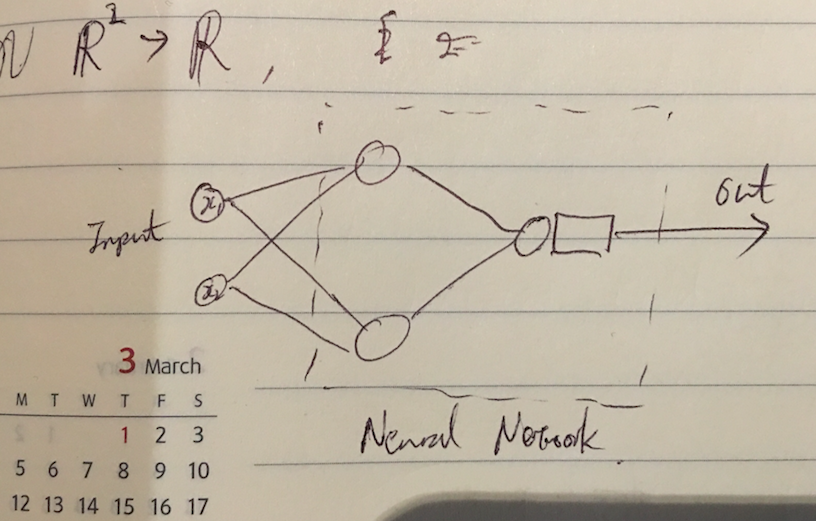 ℝ² → ℝ ,
x₁
Input
out
x₂
Neural Network
3 March
M T W T F S
1 2 3
5 6 7 8 9 10
12 13 14 15 16 17